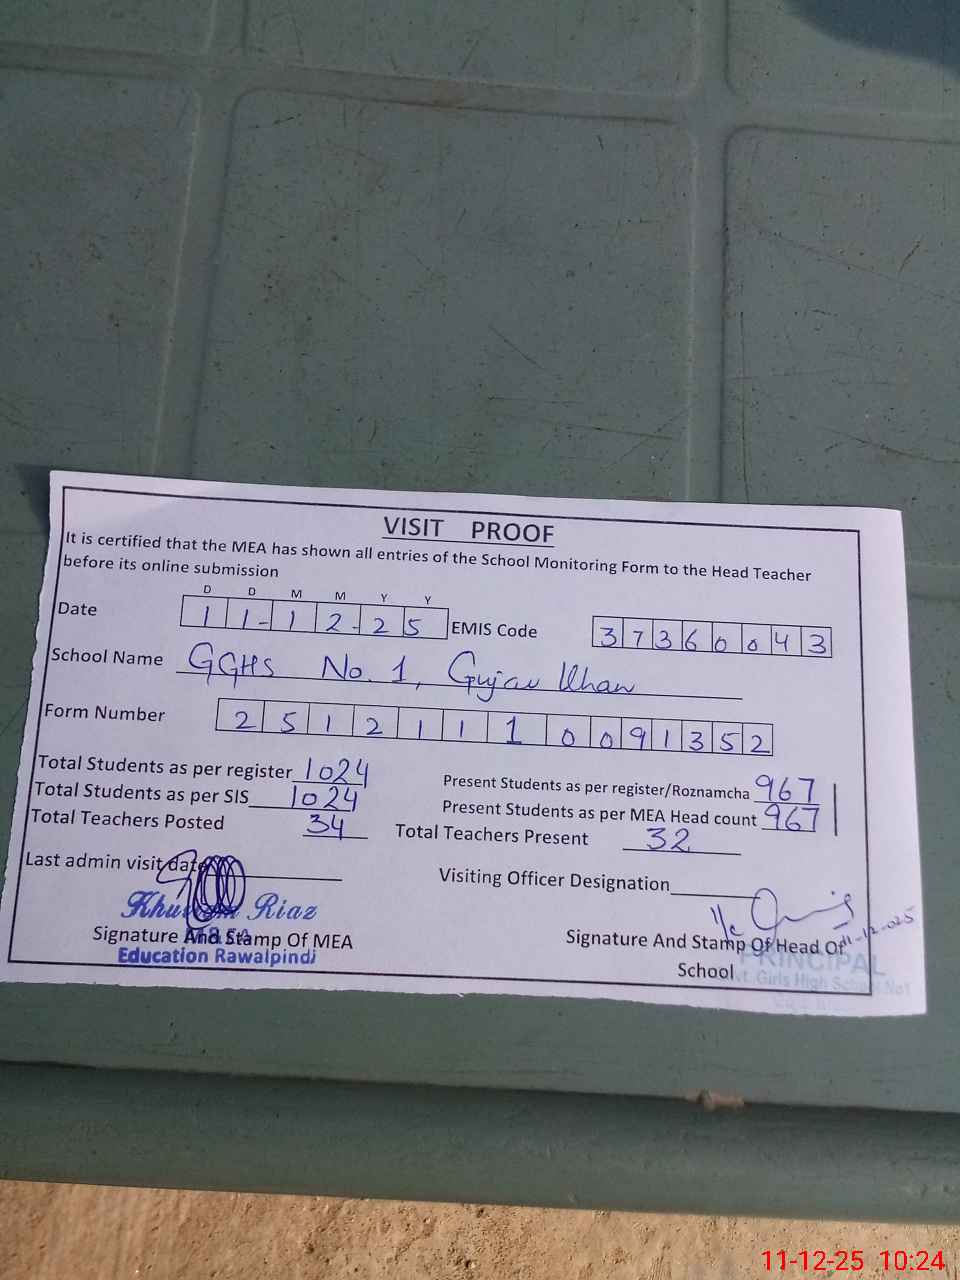 VISIT PROOF
It is certified that the MEA has shown all entries of the School Monitoring Form to the Head Teacher
before its online submission
D D M M Y Y
Date 11-12-25 EMIS Code 37360043
School Name GGHS No. 1, Gujar Khan
Form Number 25121110091352
Total Students as per register 1024 Present Students as per register/Roznamcha 967
Total Students as per SIS 1024 Present Students as per MEA Head count 967
Total Teachers Posted 34 Total Teachers Present 32
Last admin visit date Visiting Officer Designation
Riaz
Signature And Stamp Of MEA Signature And Stamp Of Head Of
School
11-12-025
Education Rawalpindi
PRINCIPAL
vt. Girls High School No1
11-12-25 10:24